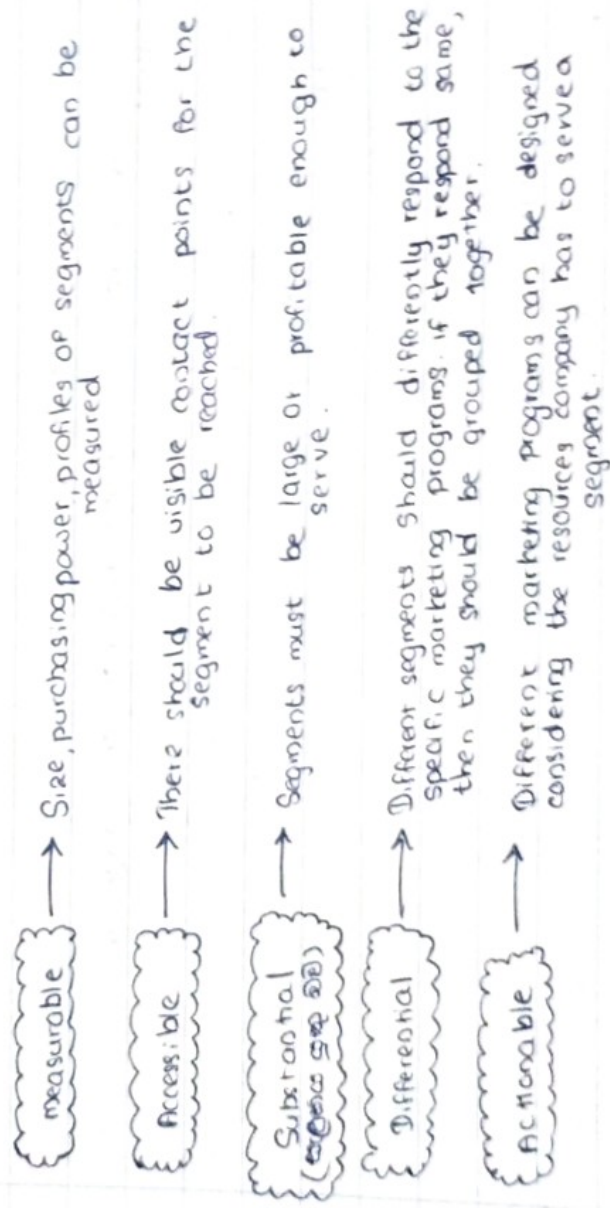 measurable → Size, purchasing power, profiles of segments can be
measured
Accessible → There should be visible contact points for the
segment to be reached.
Substantial → Segments must be large or profitable enough to
serve.
Differential → Different segments should differently respond to the
specific marketing programs. if they respond same,
then they should be grouped together.
Actionable → Different marketing programs can be designed
considering the resources company has to serve a
segment.